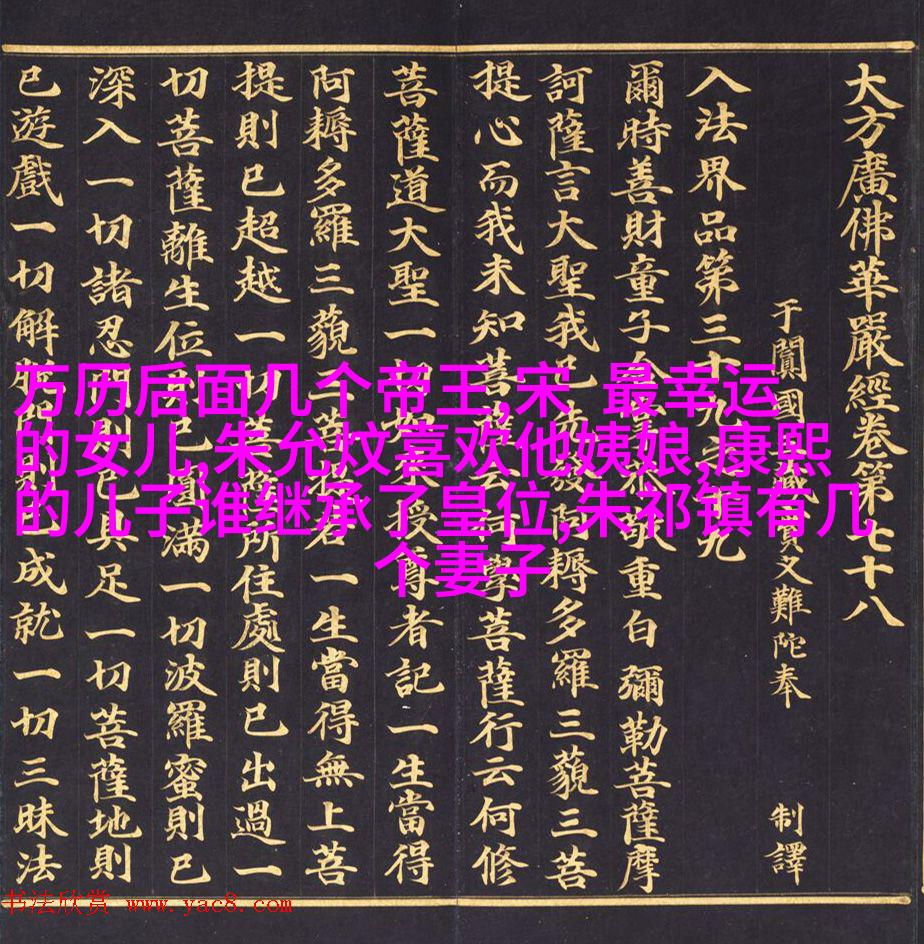 大方廣佛華嚴經卷第七十八
于闐國藏叉難陀奉 制譯
入法界品第三十九之十九
爾時善財童子合掌恭敬重白彌勒菩薩摩
訶薩言大聖我已先發阿耨多羅三藐三菩
提心而我未知菩薩云何學菩薩行云何修
菩薩道大聖一切如來授尊者記一生當得
阿耨多羅三藐三菩提若一生當得無上菩
提則已超越一切菩薩所住處則已出過一
切菩薩離生位則已圓滿一切波羅蜜則已
深入一切諸忍門則已具足一切菩薩地則
已遊戲一切解脫門則已成就一切三昧法
万历后面几个帝王,宋 最幸运
的女儿,朱允炆喜欢他姨娘,康熙
的儿子谁继承了皇位,朱祁镇有几
个妻子
书法欣赏 www.yac8.com